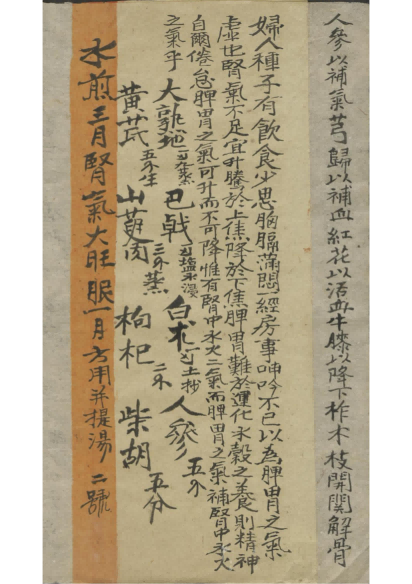 人參以補氣芎歸以補血紅花以活血牛膝以降下柞木枝開関解骨
婦人種子有飲食少思胸膈滿悶一經房事呻吟不已以為脾胃之氣
虛也腎氣不足宜升騰於上焦降於下焦脾胃難於運化水穀之養則精神
自爾倦怠脾胃之氣可升而不可降惟有腎中水火二氣而脾胃之氣補腎中水火
之氣乎 大熟地一刄蒸 巴戟一刄塩水浸 白术一刄土抄 人參五分
黄芪五分生 山萸肉三分蒸 枸杞二分 柴胡五分
水煎三月腎氣大旺眼一月方用并提湯 二號